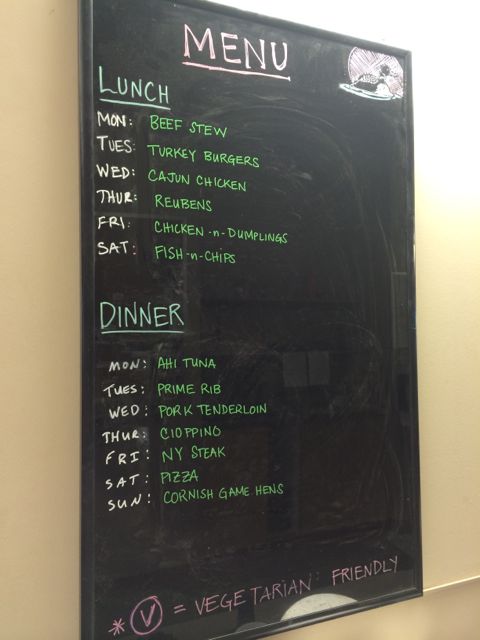 MENU
LUNCH
MON: BEEF STEW
TUES: TURKEY BURGERS
WED: CAJUN CHICKEN
THUR: REUBENS
FRI: CHICKEN-n-DUMPLINGS
SAT: FISH-n-CHIPS
DINNER
MON: AHI TUNA
TUES: PRIME RIB
WED: PORK TENDERLOIN
THUR: CIOPPINO
FRI: NY STEAK
SAT: PIZZA
SUN: CORNISH GAME HENS
* V = VEGETARIAN FRIENDLY